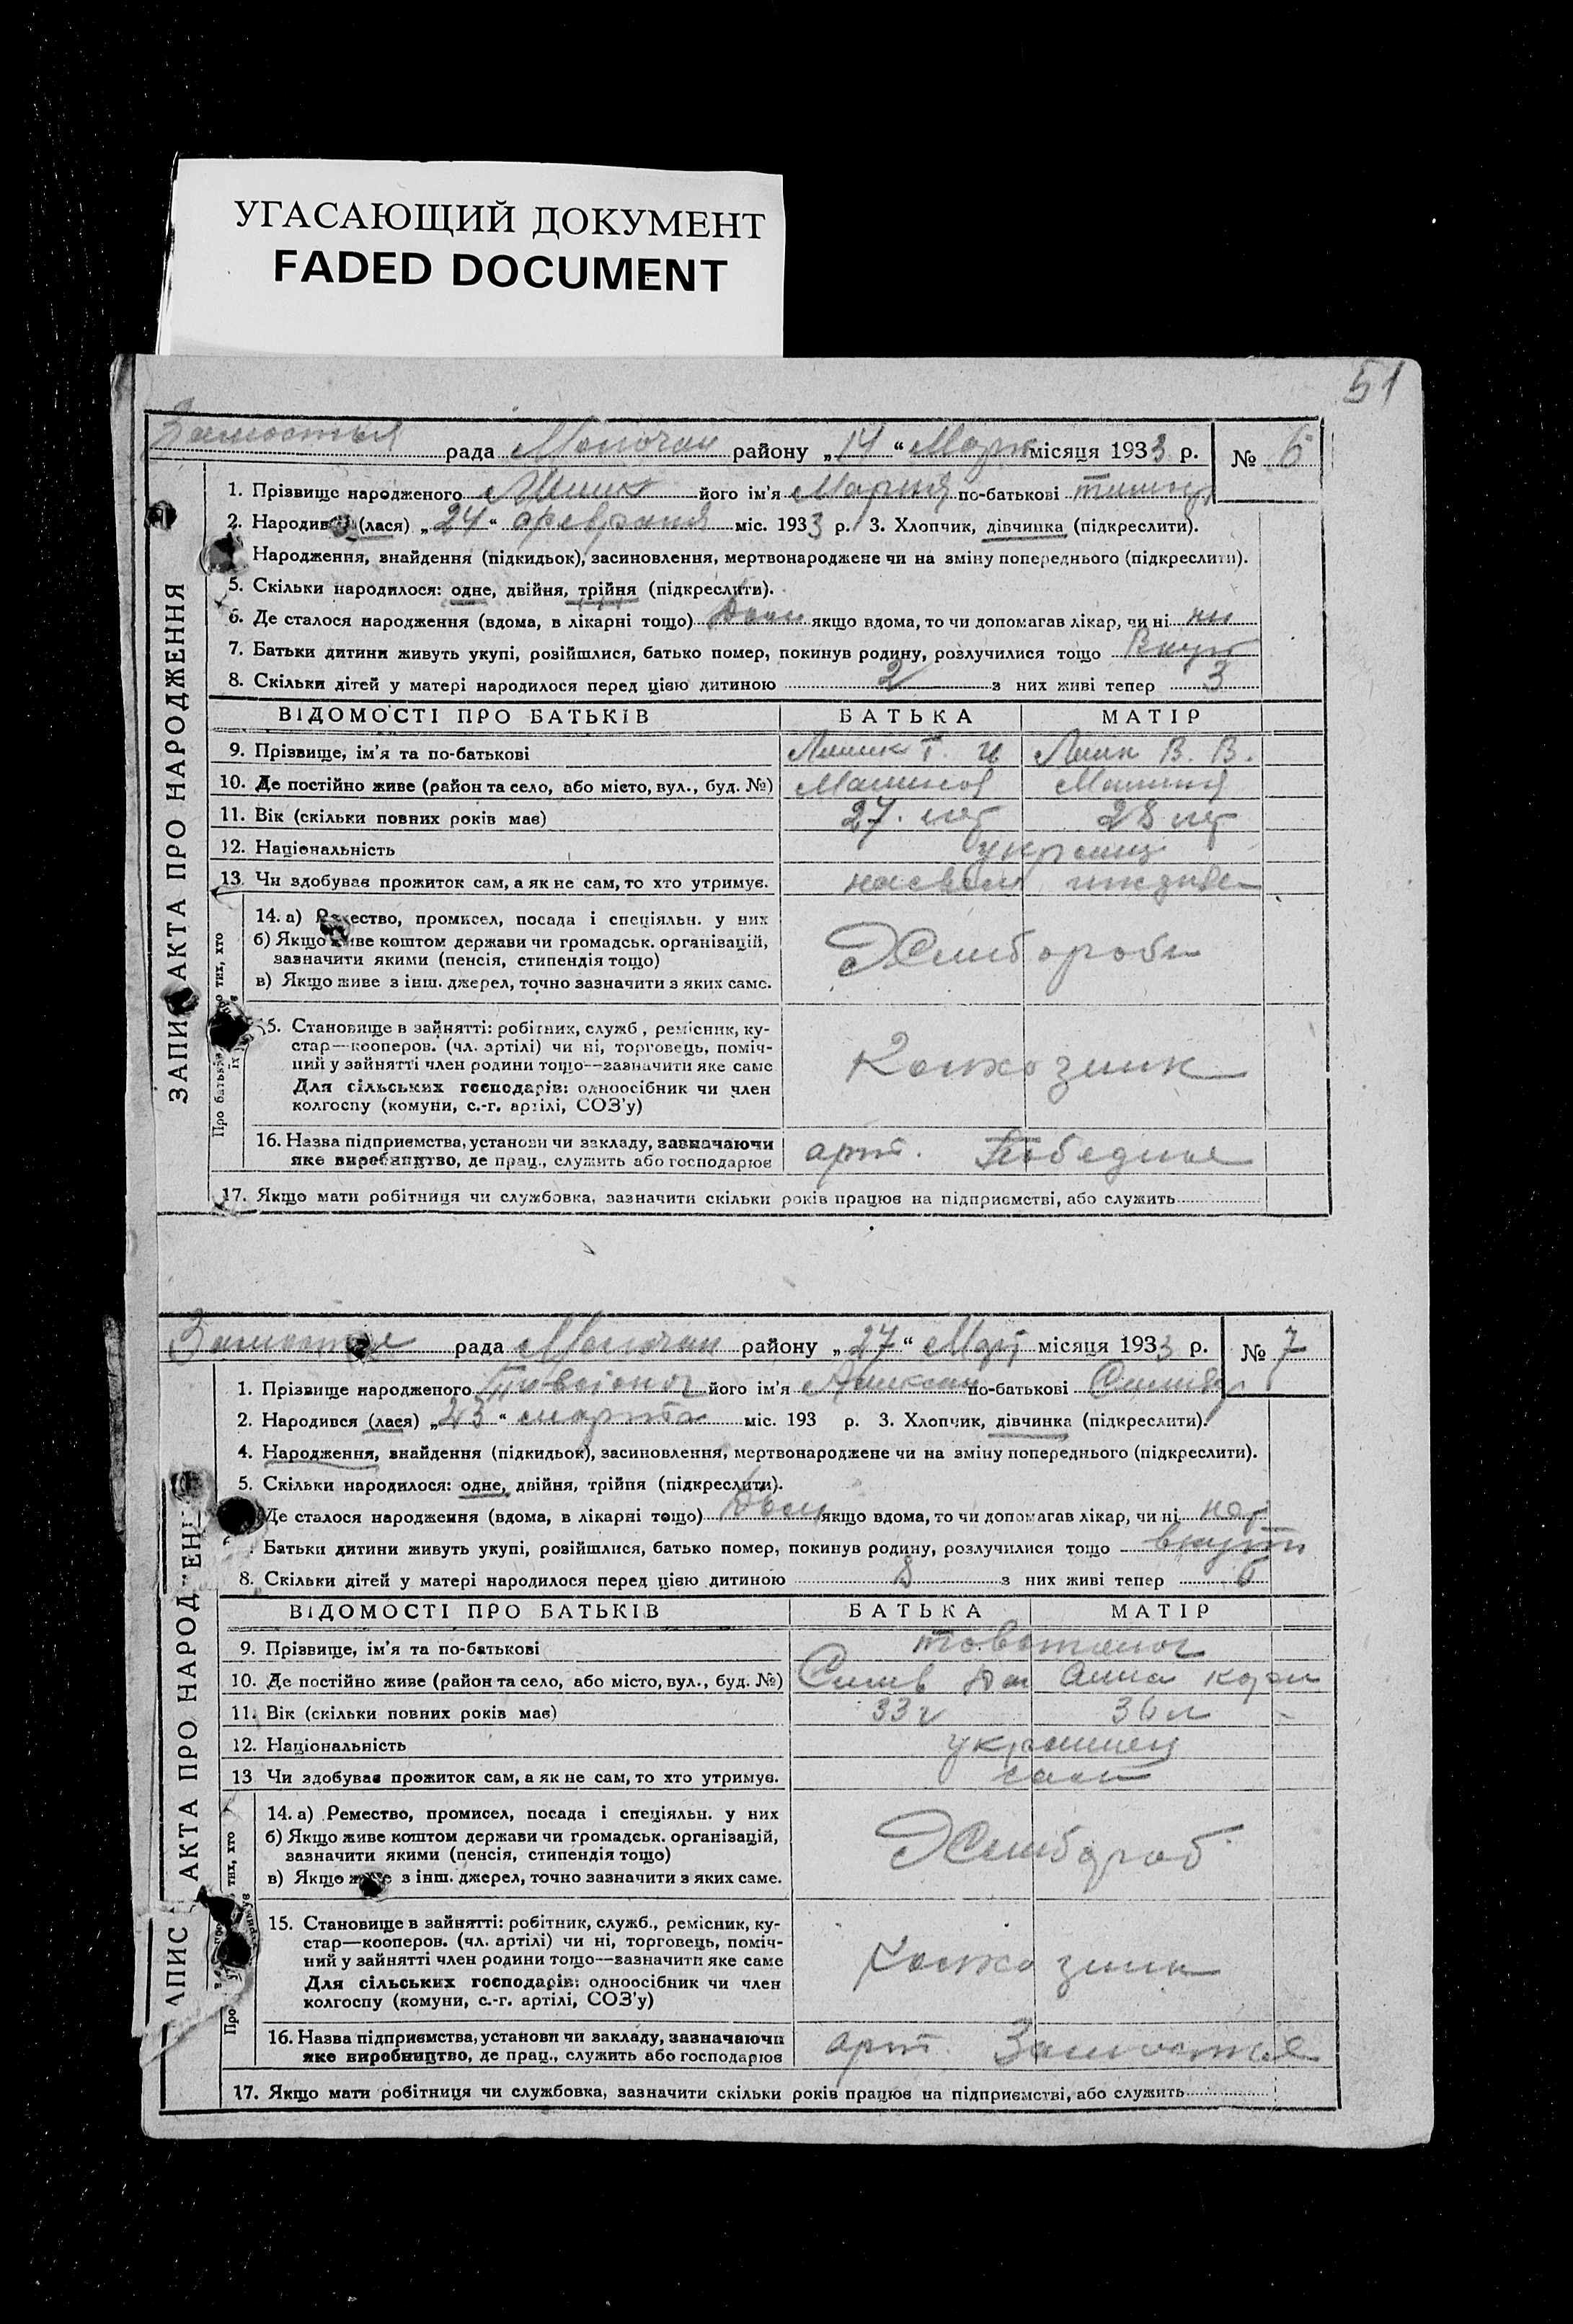 УГАСАЮЩИЙ ДОКУМЕНТ
FADED DOCUMENT
51
ЗАПИС АКТА ПРО НАРОДЖЕННЯ
Замостья рада района „14“ Март місяця 1933 р. № 6
1. Прізвище народженого його ім'я Мария по-батькові
2. Народив (лася) „24“ февраля міс. 1933 р. 3. Хлопчик, дівчинка (підкреслити).
Народження, знайдення (підкидьок), засиновлення, мертвонароджене чи на зміну попереднього (підкреслити).
5. Скільки народилося: одне, двійня, трійня (підкреслити).
6. Де сталося народження (вдома, в лікарні тощо) якщо вдома, то чи допомагав лікар, чи ні ни
7. Батьки дитини живуть укупі, розійшлися, батько помер, покинув родину, розлучилися тощо
8. Скільки дітей у матері народилося перед цією дитиною 2 з них живі тепер 3
ВІДОМОСТІ ПРО БАТЬКІВ БАТЬКА МАТІР
9. Прізвище, ім'я та по-батькові Т. И В. В.
10. Де постійно живе (район та село, або місто, вул., буд. №)
11. Вік (скільки повних років має) 27. лет 28 лет
12. Національність украинц
13. Чи здобував прожиток сам, а як не сам, то хто утримує.
14. а) Ремество, промисел, посада і спеціяльн. у них
б) Якщо живе коштом держави чи громадськ. організацій,
зазначити якими (пенсія, стипендія тощо)
в) Якщо живе з інш. джерел, точно зазначити з яких саме.
Хлибороби
5. Становище в зайнятті: робітник, служб., ремісник, ку-
стар—кооперов. (чл. артілі) чи ні, торговець, поміч-
ний у зайнятті член родини тощо—зазначити яке саме
Для сільських господарів: одноосібник чи член
колгоспу (комуни, с.-г. артілі, СОЗ'у)
Колхозник
16. Назва підприємства, установи чи закладу, зазначаючи
яке виробництво, де прац., служить або господарює
арт.
17. Якщо мати робітниця чи службовка, зазначити скільки років працює на підприємстві, або служить
Замостье рада району „27“ Март місяця 1933 р. № 7
1. Прізвище народженого його ім'я по-батькові
2. Народився (лася) „23“ марта міс. 193 р. 3. Хлопчик, дівчинка (підкреслити).
4. Народження, знайдення (підкидьок), засиновлення, мертвонароджене чи на зміну попереднього (підкреслити).
5. Скільки народилося: одне, двійня, трійня (підкреслити).
Де сталося народження (вдома, в лікарні тощо) якщо вдома, то чи допомагав лікар, чи ні
Батьки дитини живуть укупі, розійшлися, батько помер, покинув родину, розлучилися тощо вкупи
8. Скільки дітей у матері народилося перед цією дитиною 8 з них живі тепер
ВІДОМОСТІ ПРО БАТЬКІВ БАТЬКА МАТІР
9. Прізвище, ім'я та по-батькові
10. Де постійно живе (район та село, або місто, вул., буд. №) Анна
11. Вік (скільки повних років має) 33 г 36 л
12. Національність украинец
13 Чи здобував прожиток сам, а як не сам, то хто утримує. сами
14. а) Ремество, промисел, посада і спеціяльн. у них
б) Якщо живе коштом держави чи громадськ. організацій,
зазначити якими (пенсія, стипендія тощо)
в) Якщо живе з інш. джерел, точно зазначити з яких саме.
Хлибороб
15. Становище в зайнятті: робітник, служб., ремісник, ку-
стар—кооперов. (чл. артілі) чи ні, торговець, поміч-
ний у зайнятті член родини тощо—зазначити яке саме
Для сільських господарів: одноосібник чи член
колгоспу (комуни, с.-г. артілі, СОЗ'у)
Колхозник
16. Назва підприємства, установи чи закладу, зазначаючи
яке виробництво, де прац., служить або господарює
арт. Замостье
17. Якщо мати робітниця чи службовка, зазначити скільки років працює на підприємстві, або служить